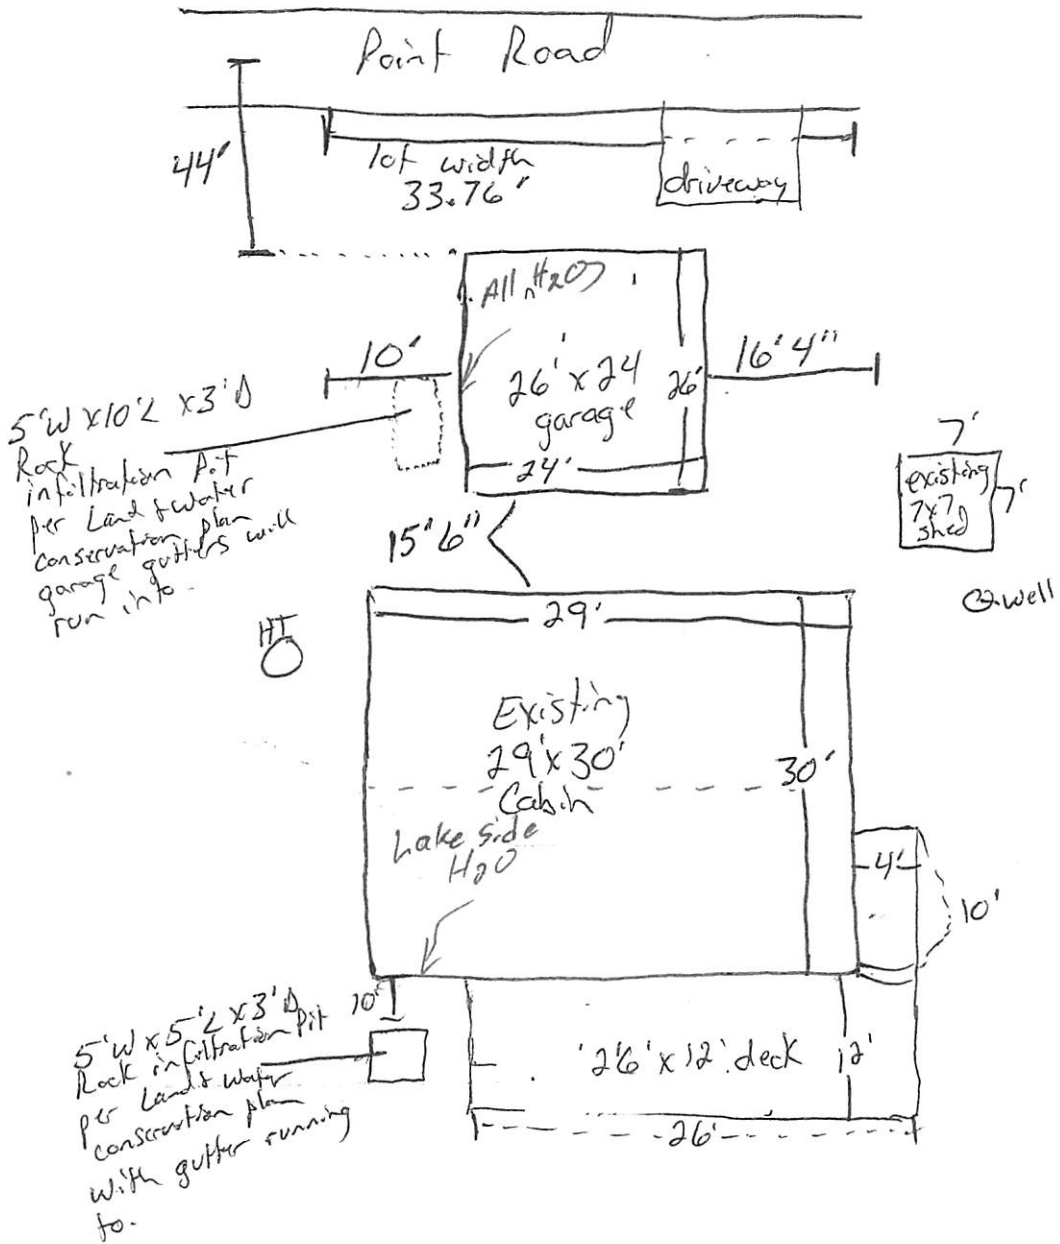 Point Road
44'
lot width
33.76'
driveway
All H2O
10'
26' x 24
garage
26'
24'
16' 4"
5'W x 10'L x 3'D
Rock
infiltration Pit
per Land & Water
conservation plan
garage gutters will
run into.
7'
existing
7x7
shed
7'
15' 6"
well
HT
29'
Existing
29' x 30'
Cabin
30'
Lake side
H2O
4'
10'
10'
5'W x 5'L x 3'D
Rock infiltration Pit
per Land & Water
conservation plan
with gutter running
to.
26' x 12' deck
12'
26'